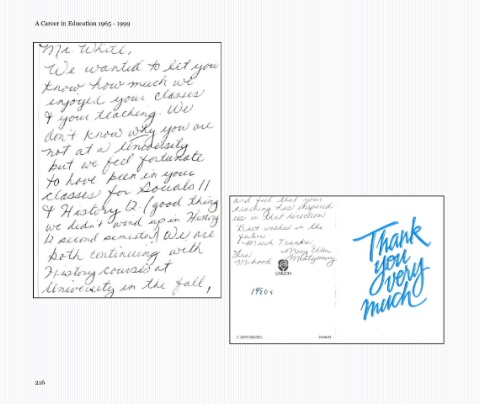 A Career in Education 1965 - 1999
Mr. White,
We wanted to let you
know how much we
enjoyed your classes
& your teaching. We
don't know why you are
not at a University
but we feel fortunate
to have been in your
classes for Socials 11
& History 12. (good thing
we didn't wind up in History
12 second semester) We are
both continuing with
History courses at
University in the fall,
and feel that your
teaching has inspired
us in that direction
Best wishes in the
future
Much Thanks!
Mary Ellen
Montgomery
CARLTON
1980s
Thank
you
very
much
216